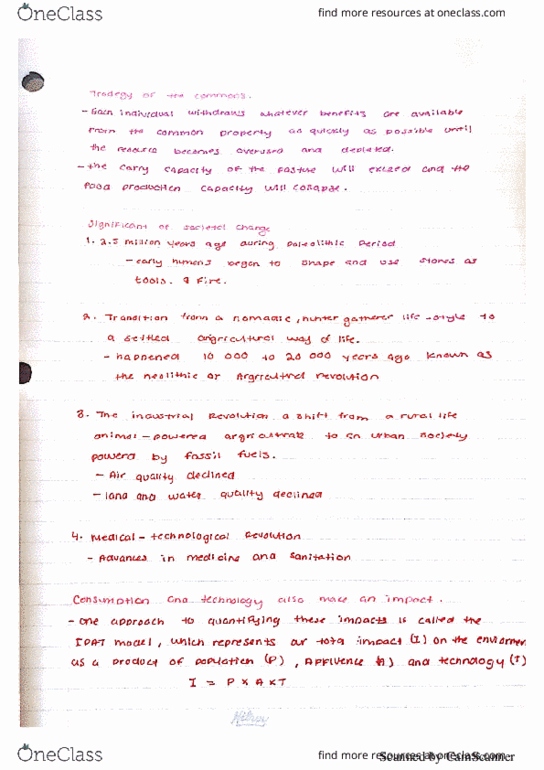 OneClass
find more resources at oneclass.com
Tradegy of the commons.
- Each individual withdraws whatever benefits are available
from the common property as quickly as possible until
the resource becomes overused and depleted.
- the carry capacity of the Pasture will exceed and the
food production capacity will collapse.
Significant of societel change
1. 2.5 million years ago during paleolithic period
- early humans began to shape and use stones as
tools. & fire.
2. Trandition from a nomadic, hunter gatherer life-style to
a settled argricultural way of life.
- happened 10 000 to 20 000 years ago known as
the neolithic or Argricultrel revolution
3. The industrial Revolution a shift from a rural life
animal-powered to an urban society
powered by fossil fuels.
- Air quality declined
- land and water quality declined
4. Medical-technological Revolution
- Advances in medicine and sanitation
Consumption and technology also make an impact.
- one approach to quantifying these impacts is called the
IPAT model, which represents our total impact (I) on the
as a product of population (P), Affluence (A) and technology (T)
I = P x A x T
OneClass
find more resources at oneclass.com
Scanned by CamScanner